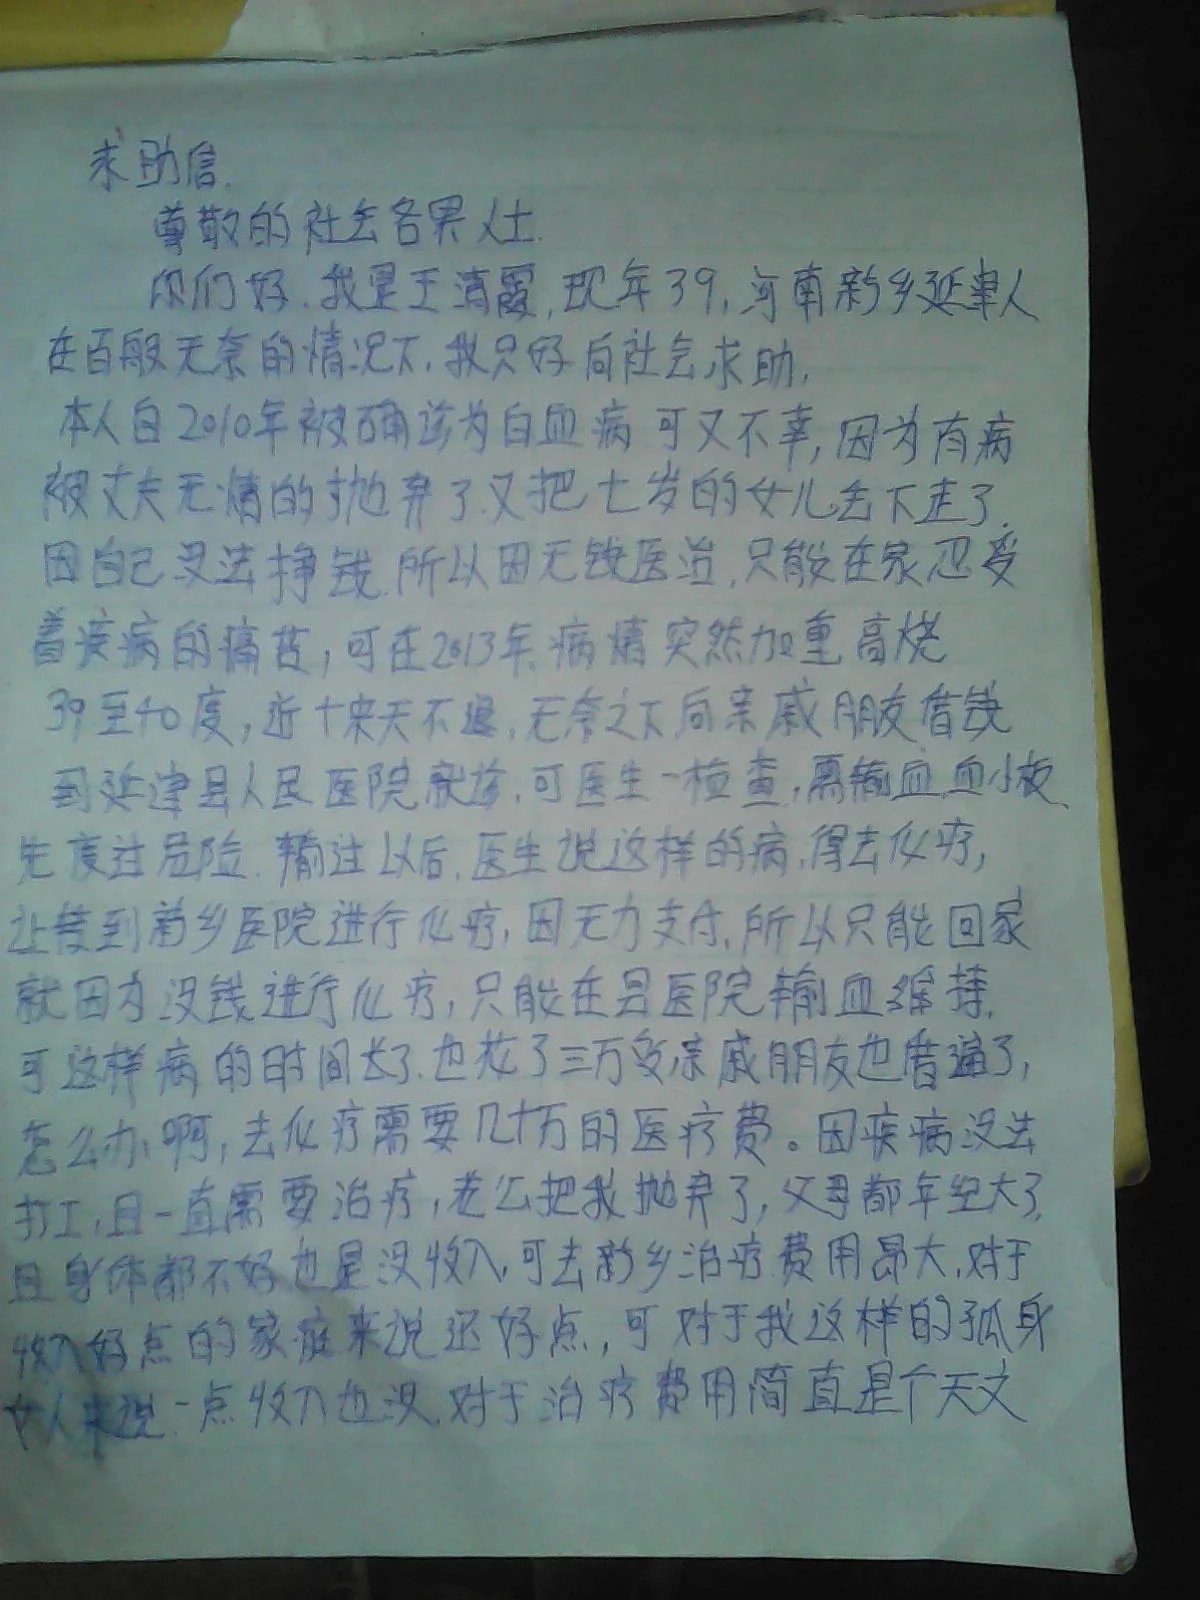 求助信.
尊敬的社会各界人士.
你们好.我是王清霞,现年39,河南新乡延津人
在百般无奈的情况下,我只好向社会求助,
本人自2010年被确诊为白血病 可又不幸,因为有病
被丈夫无情的抛弃了.又把七岁的女儿丢下走了.
因自己没法挣钱.所以因无钱医治.只能在家忍受
着疾病的痛苦,可在2013年.病情突然加重高烧
39至40度,近十来天不退,无奈之下向亲戚朋友借钱
到延津县人民医院就诊.可医生一检查,需输血.血小板.
先度过危险.输注以后.医生说这样的病,得去化疗,
让转到新乡医院进行化疗,因无力支付.所以只能回家
就因为没钱进行化疗,只能在县医院输血维持.
可这样病的时间长了.也花了三万多亲戚朋友也借遍了,
怎么办啊,去化疗需要几十万的医疗费。因疾病没法
打工,且一直需要治疗,老公把我抛弃了,父母都年纪大了.
且身体都不好也是没收入,可去新乡治疗费用昂大.对于
收入好点的家庭来说还好点,可对于我这样的孤身
女人来说一点收入也没.对于治疗费用简直是个天文